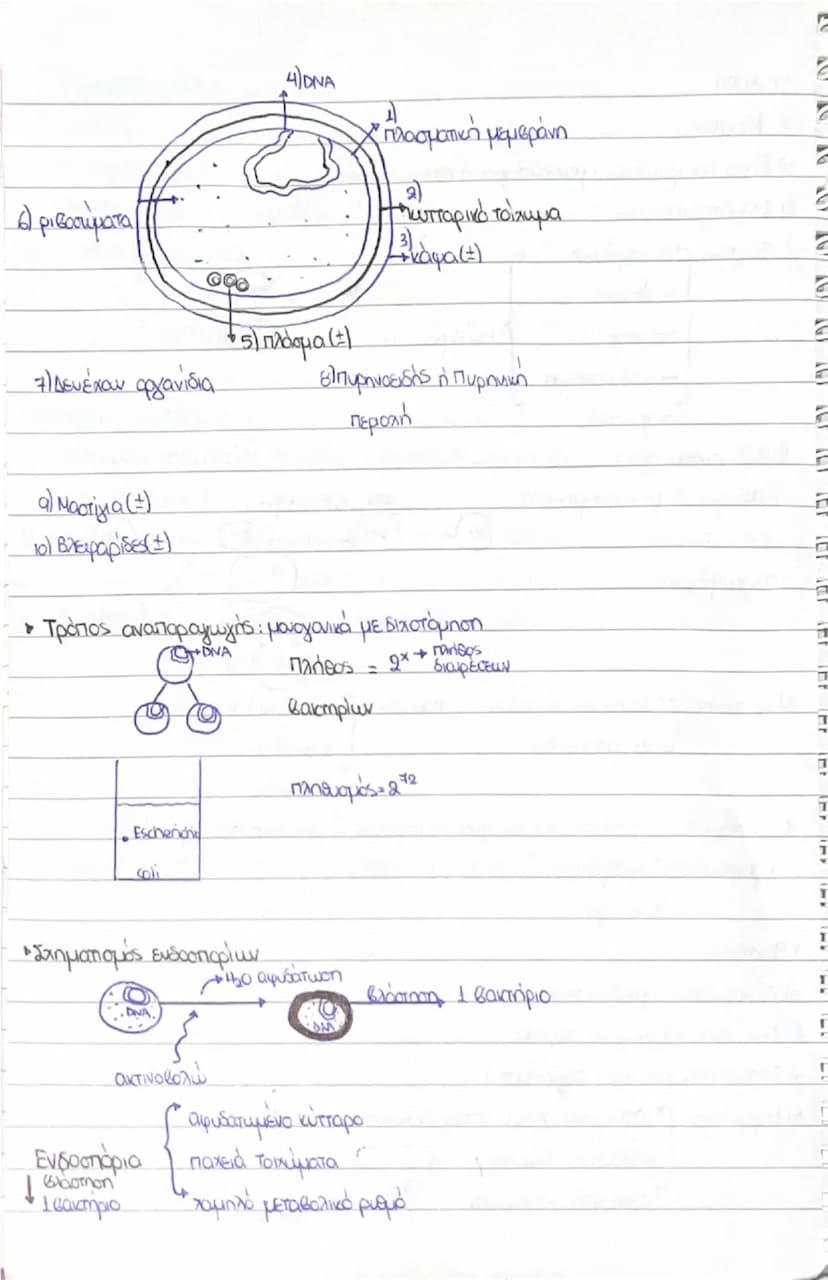 4) DNA
1)
πλασματική μεμβράνη
2)
κυτταρικό τοίχωμα
6) ριβοσώματα
3)
κάψα (±)
5) πλάσμα (±)
7) Δεν έχουν οργανίδια
8) Πυρηνοειδής ή Πυρηνική
περιοχή
9) Μαστίγια (±)
10) Βλεφαρίδες (±)
▸ Τρόπος αναπαραγωγής: μονογονικά με διχοτόμηση
DNA
πλήθος = 2ˣ → πλήθος διαιρέσεων
βακτηρίων
πληθυσμός = 2⁷²
Escherichia
coli
▸ Σχηματισμός ενδοσπορίων
H₂O αφυδάτωση
DNA
DNA
βλάστηση 1 βακτήριο
ακτινοβολώ
αφυδατωμένο κύτταρο
Ενδοσπόρια
παχειά τοιχώματα
βλάστηση
1 βακτήριο
χαμηλό μεταβολικό ρυθμό